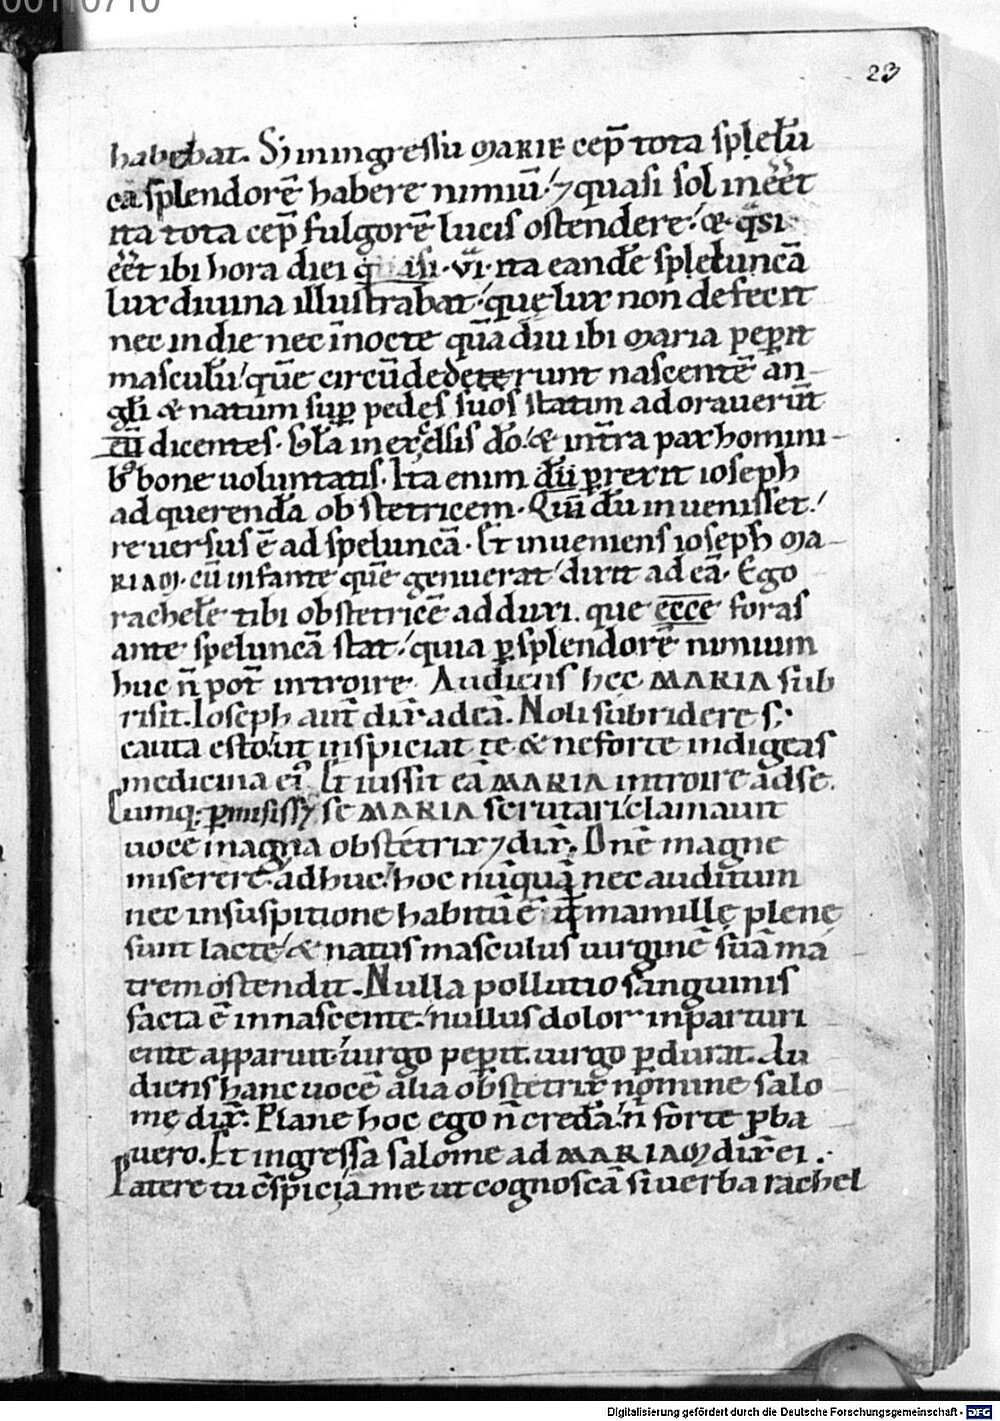 00116710
23
habebat. S; in ingressu MARIE cep̄ tota spelū
cā splendorē habere nimiū ⁊ quasi sol in ēēt
ita tota cep̄ fulgorē lucis ostendere. & q̄si
ēēt ibi hora diei quasi .vi. ita eandē speluncā
lux diuina illustrabat. quę lux non defecit
nec in die nec in nocte quādiu ibi Maria peperit
masculū. quē circūdederunt nascentē an-
głi & natum sup̄ pedes suos statim adorauerūt
eū dicentes. Głā in excelsis dō. & in tr̄a pax homini-
bꝰ bone uoluntatis. Ita enim dū prexit ioseph
ad querendā obstetricem. Qui dū inuenisset.
reuersus ē ad speluncā. Et inueniens ioseph MA-
RIAM. cū infante quē genuerat dixit ad eā. Ego
rachelē tibi obstetricē adduxi. que ecce foras
ante speluncā stat. quia p̲ splendorē nimium
huc n̄ pot̄ introire. Audiens hec MARIA sub
risit. Ioseph aut̄ dix̄ ad eā. Noli subridere s;
cauta esto. ut inspiciat te & ne forte indigeas
medicina ei᷒. Et iussit eā MARIA introire ad se.
Cumq; p̲misiss; se MARIA scrutari clamauit
uoce magna obstetrix ⁊ dix̄. Dn̄e magne
miserere. adhuc hoc nūquā nec auditum
nec in suspitione habitū ē. ut mamillę plene
sunt lacte. & natus masculus uirginē suā ma
trem ostendit. Nulla pollutio sanguinis
facta ē in nascente. nullus dolor in parturi
ente apparuit. uirgo pep̲it. uirgo p̲durat. Au
diens hanc uocē alia obstetrix nomine salo
mę dix̄. Plane hoc ego n̄ credā. n̄ forte p̲ba
uero. Et ingressa salome ad MARIAM dix̄ ei.
Patere tu cspiciā me ut cognoscā si uerba rachel
Digitalisierung gefördert durch die Deutsche Forschungsgemeinschaft - DFG